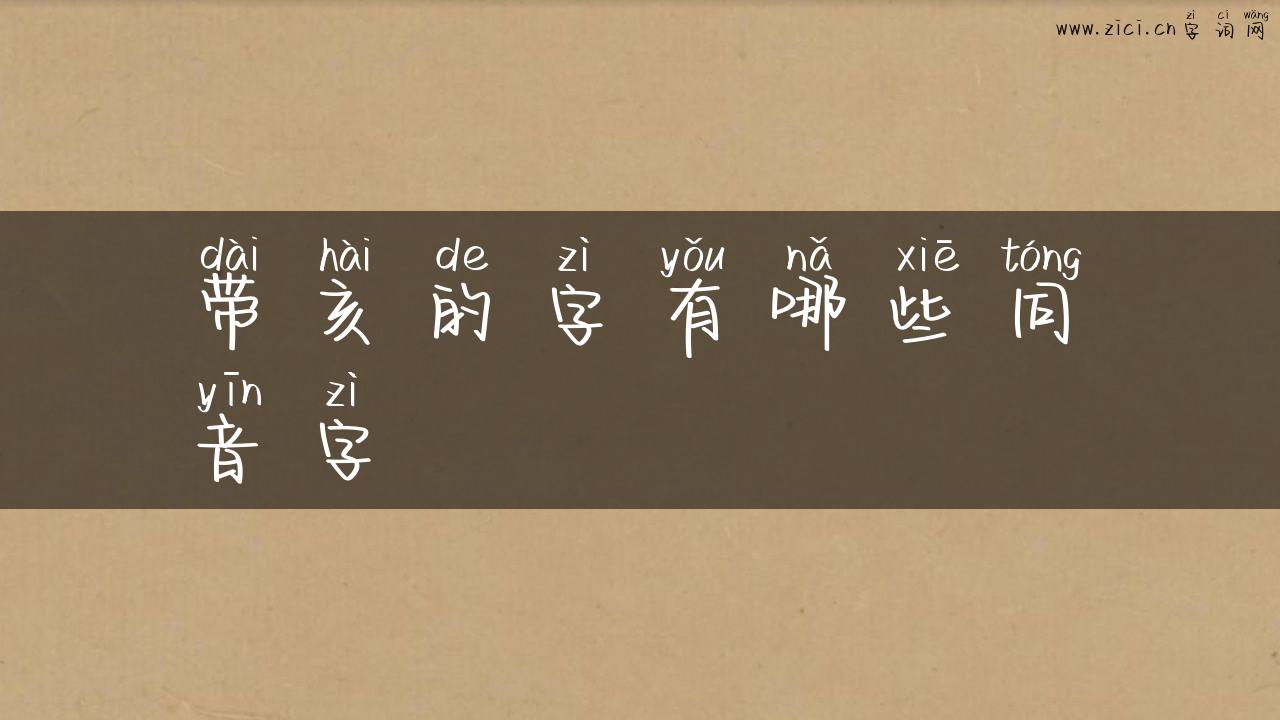 zì cí wǎng
www.zici.cn 字词网
dài hài de zì yǒu nǎ xiē tóng
带亥的字有哪些同
yīn zì
音字